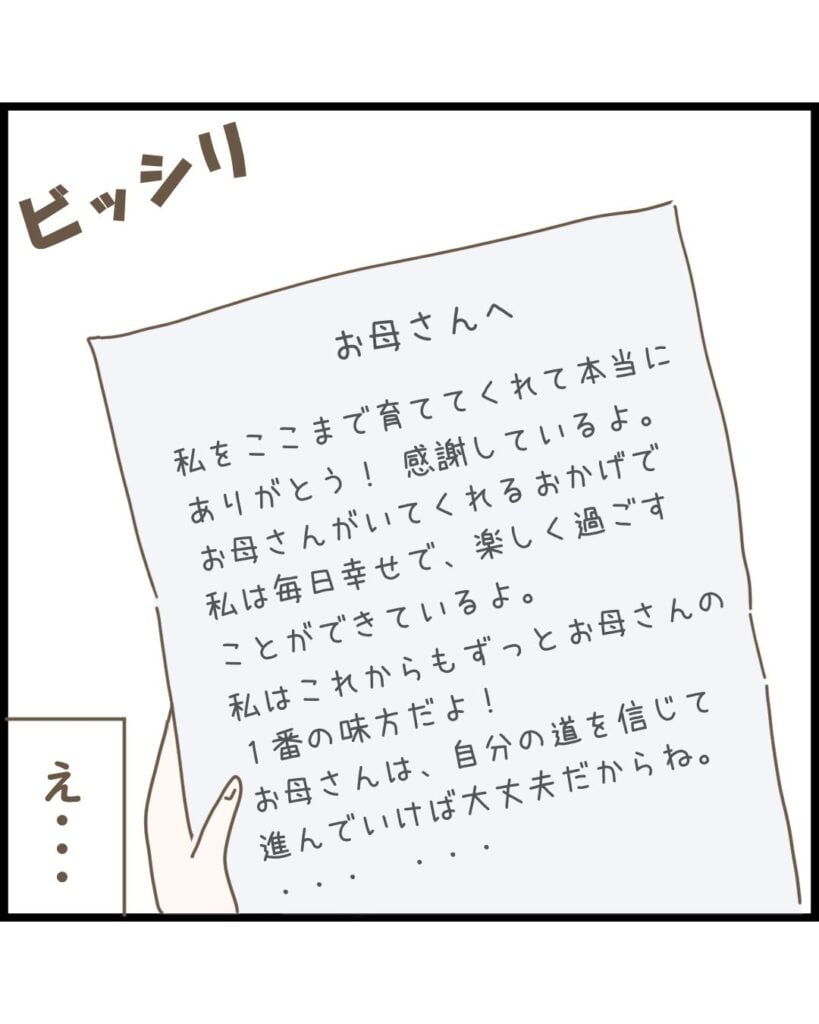 ビッシリ
お母さんへ
私をここまで育ててくれて本当に
ありがとう！ 感謝しているよ。
お母さんがいてくれるおかげで
私は毎日幸せで、楽しく過ごす
ことができているよ。
私はこれからもずっとお母さんの
1番の味方だよ！
お母さんは、自分の道を信じて
進んでいけば大丈夫だからね。
・・・ ・・・
え・・・